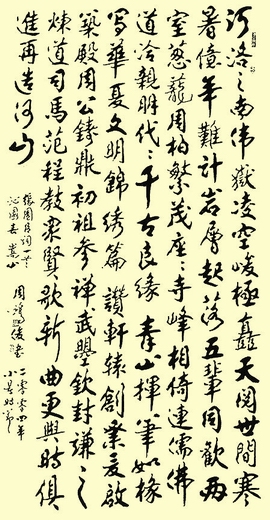 河洛之南偉嶽凌空峻極矗天閱世間寒
暑億年難計岩層起落五輩同歡兩
室葱蘢周柏繁茂座々寺峰相倚連儒佛
道冷親朋代々千古良緣 青山揮筆如椽
寫華夏文明錦綉篇 讚軒轅創業夏啟
築殿周公鑄鼎初祖參禪武曌欽封謙々
煉道司馬范程教衆賢歌新曲更與時俱
進再造河山
張國臣詞一首
沁園春 嵩山
二零零四年
小暑時節